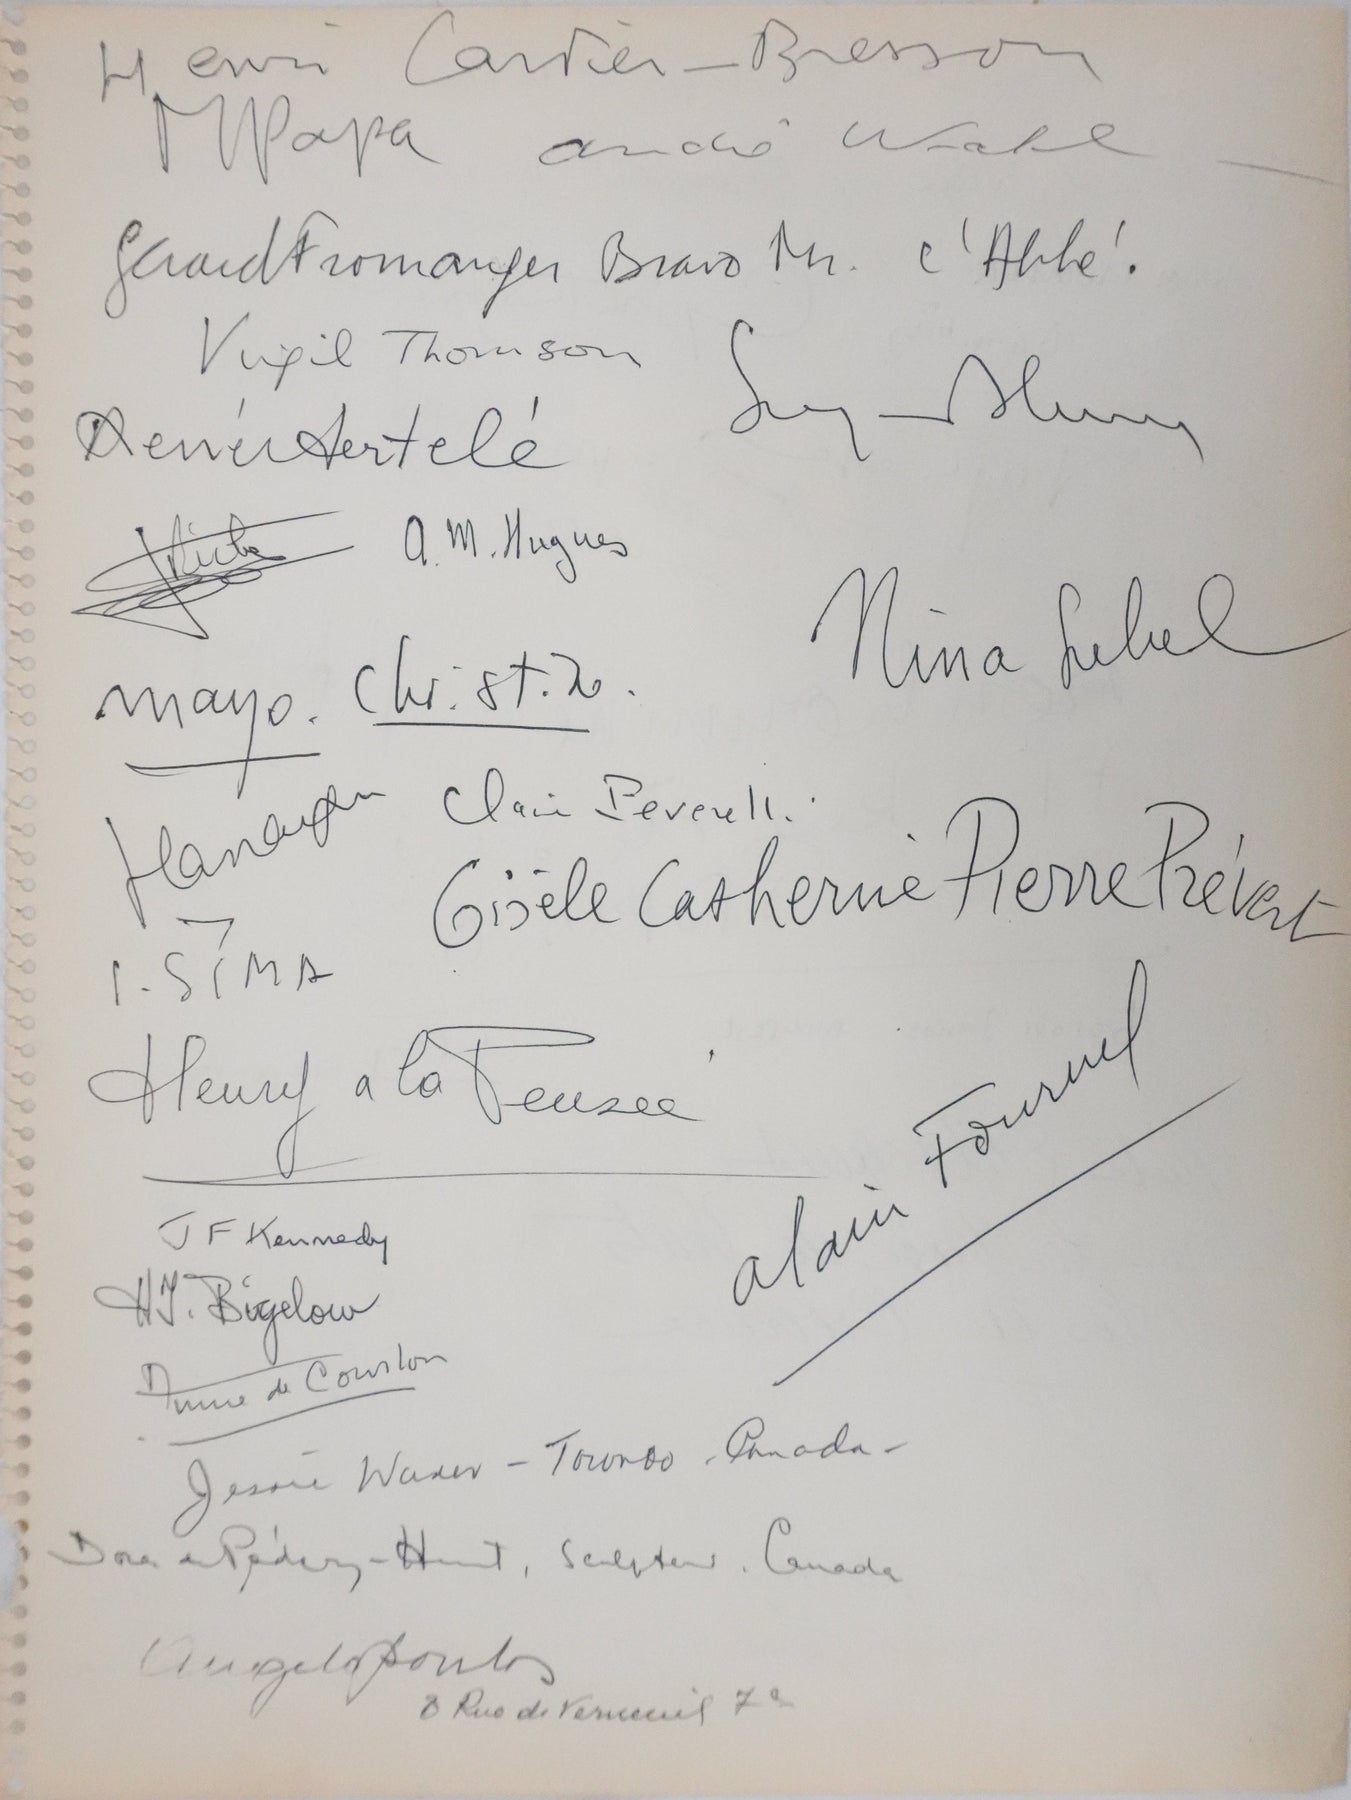 Henri Cartier-Bresson
MPapa andré
Gérard Fromanger Bravo Mr. l'Abbé.
Virgil Thomson
René Bertelé
A. M. Hugues
Nina Lebel
mayo. Christo.
Clair Peverell.
Gisèle Catherine Pierre Prévert
I. SÍMA
Henry a la Pensée
alain Fournel
J F Kennedy
HJ. Bigelow
de Courlon
Jessie - Toronto. Canada -
Dora de Pédery-Hunt, sculptor. Canada
Angelopoulos
8 Rue de Verneuil 7e